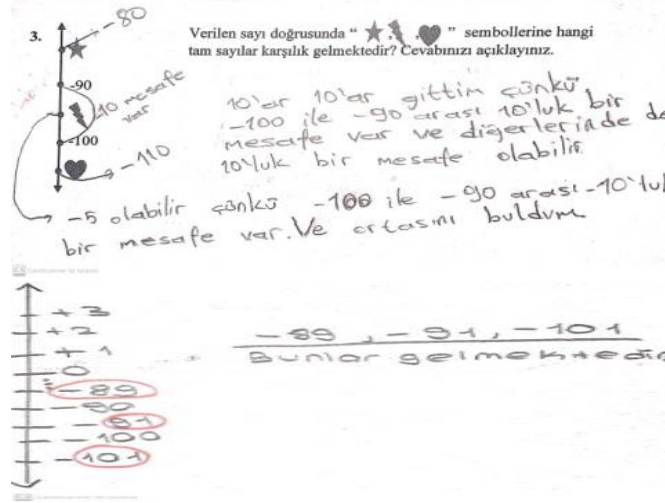 3.
Verilen sayı doğrusunda “ , , ” sembollerine hangi
tam sayılar karşılık gelmektedir? Cevabınızı açıklayınız.
-80
-90
10 mesafe
var
-100
-110
10'ar 10'ar gittim çünkü
-100 ile -90 arası 10'luk bir
mesafe var ve diğerlerinde de
10'luk bir mesafe olabilir.
-5 olabilir çünkü -100 ile -90 arası -10'luk
bir mesafe var. Ve ortasını buldum
+3
+2
+1
0
-89
-90
-91
-100
-101
-89, -91, -101
Bunlar gelmektedir